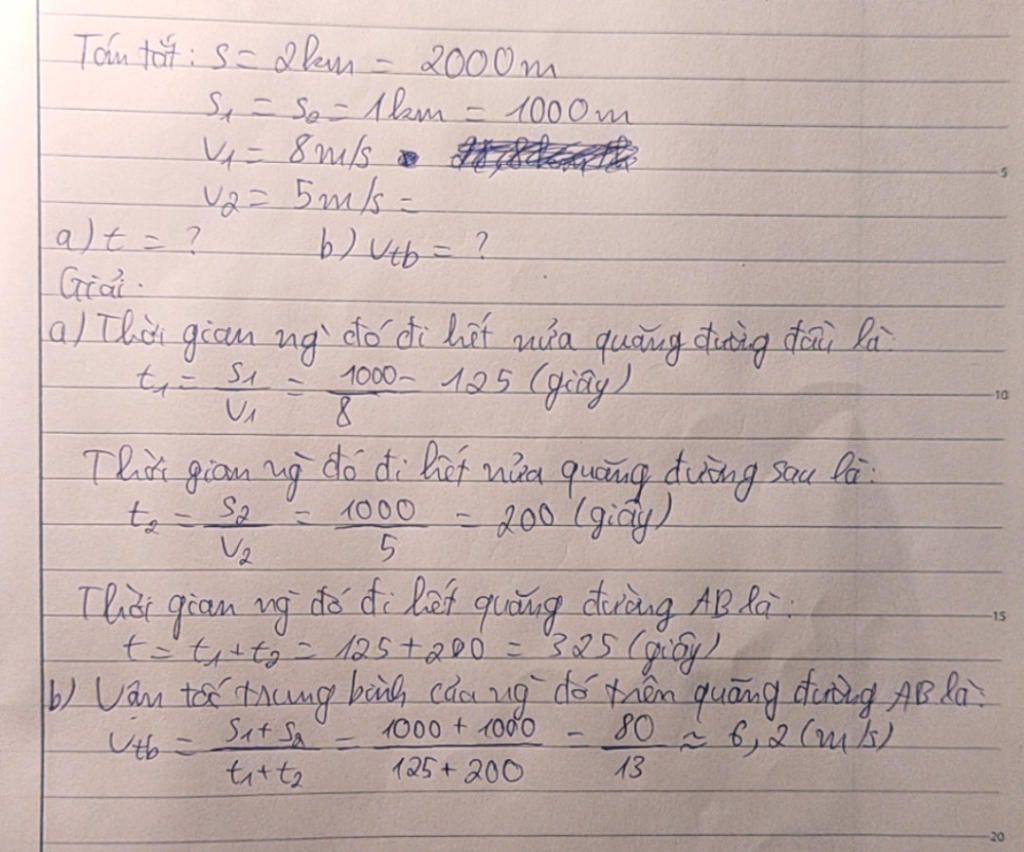 Tóm tắt: s = 2km = 2000m
s₁ = s₂ = 1km = 1000m
v₁ = 8m/s
v₂ = 5m/s =
a) t = ? b) vtb = ?
Giải.
a) Thời gian ng` đó đi hết nửa quãng đường đầu là:
t₁ = s₁/v₁ = 1000/8 = 125 (giây)
Thời gian ng` đó đi hết nửa quãng đường sau là:
t₂ = s₂/v₂ = 1000/5 = 200 (giây)
Thời gian ng` đó đi hết quãng đường AB là:
t = t₁ + t₂ = 125 + 200 = 325 (giây)
b) Vận tốc trung bình của ng` đó trên quãng đường AB là:
vtb = s₁ + s₂/t₁ + t₂ = 1000 + 1000/125 + 200 = 80/13 ≈ 6,2 (m/s)
5
10
15
20